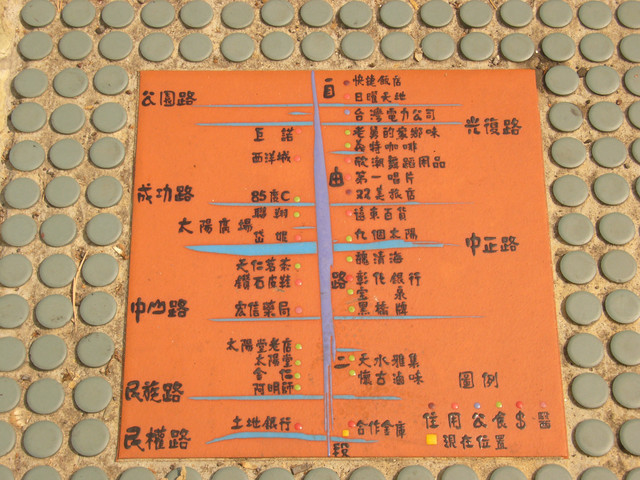 公園路
巨諾
西洋城
成功路
85度C
聯翔
太陽廣場
岱姬
天仁茗茶
鑽石皮鞋
中山路
宏信藥局
太陽堂老店
太陽堂
金仁
阿明師
民族路
土地銀行
民權路
自由路二段
快捷飯店
日曜天地
台灣電力公司
光復路
老舅的家鄉味
義特咖啡
欣潮舞蹈用品
第一唱片
双美旅店
遠東百貨
九個太陽
中正路
龍清海
彰化銀行
宝泉
黑橋牌
天水雅集
懷古滷味
圖例
合作金庫
住用公食$醫
現在位置